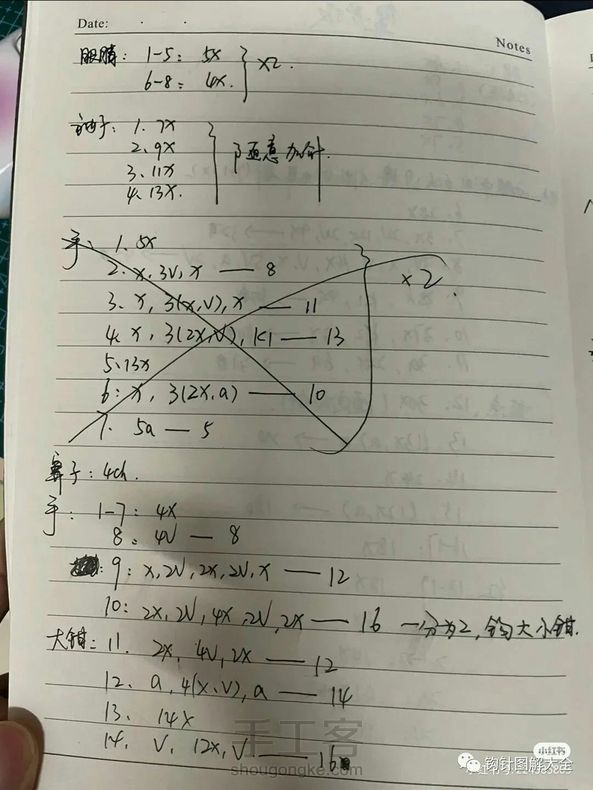 Date:
Notes
眼睛: 1-5: 5X
6-8: 4X. } x2.
子: 1. 7X
2. 9X
3. 11X
4. 13X.
随意加针.
手、 1. 5X
2. X, 3V, X — 8
3. X, 3(X,V), X — 11
x2.
4. X, 3(2X,V), K1 — 13
5. 13X
6: X, 3(2X,a) — 10
7. 5a — 5
鼻子: 4ch.
手: 1-7: 4X
8: 4V — 8
9: X, 2V, 2X, 2V, X — 12
10: 2X, 2V, 4X, 2V, 2X — 16 一分为2, 钩大小钳.
大钳: 11. 2X, 4V, 2X — 12
12. a, 4(X,V), a — 14
13. 14X
14. V, 12X, V — 16
手工客
shougongke.com
小红书
钩针图解大全